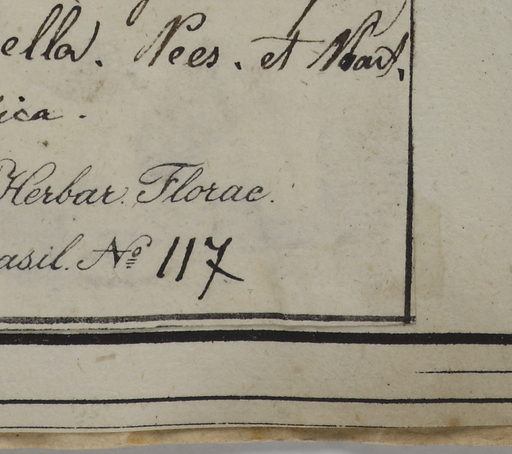 ella. Nees. et Mart.
ica.
Herbar. Florae.
asil. No 117